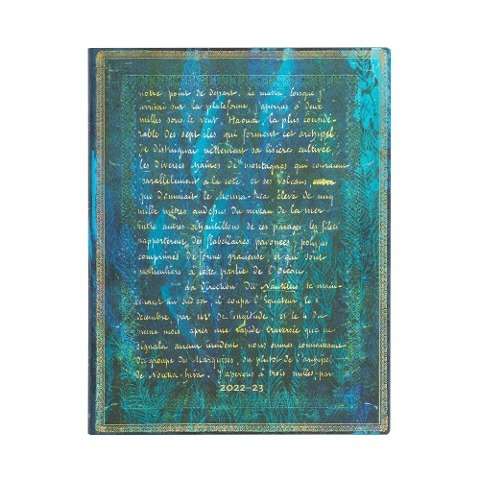 notre point de départ, le matin, lorsque j'
arrivai sur la plateforme, j'aperçus à deux
milles sous le vent, Haouai, la plus considé-
rable des sept îles qui forment cet archipel.
Je distinguai nettement sa lisière cultivée,
les diverses chaînes de montagnes qui couraient
parallèlement à la côte, et ses volcans
que dominait le Mouna-Rea, élevé de cinq
mille mètres au-dessus du niveau de la mer
Entre autres échantillons de ces parages, les filets
rapportèrent des flabellaires pavonées, polypes
comprimés de forme gracieuse, et qui sont
particuliers à cette partie de l'Océan.
La direction du Nautilus se main-
tenait au sud-est, il coupa l'Equateur, le 1
décembre, par 142° de longitude, et le 4 du
même mois après une rapide traversée que ne
signala aucun incident, nous eûmes connaissance
du groupe des Marquises, du plutôt de l'archipel
de Nouka-hiva. J'aperçus à trois milles, par
2022-23